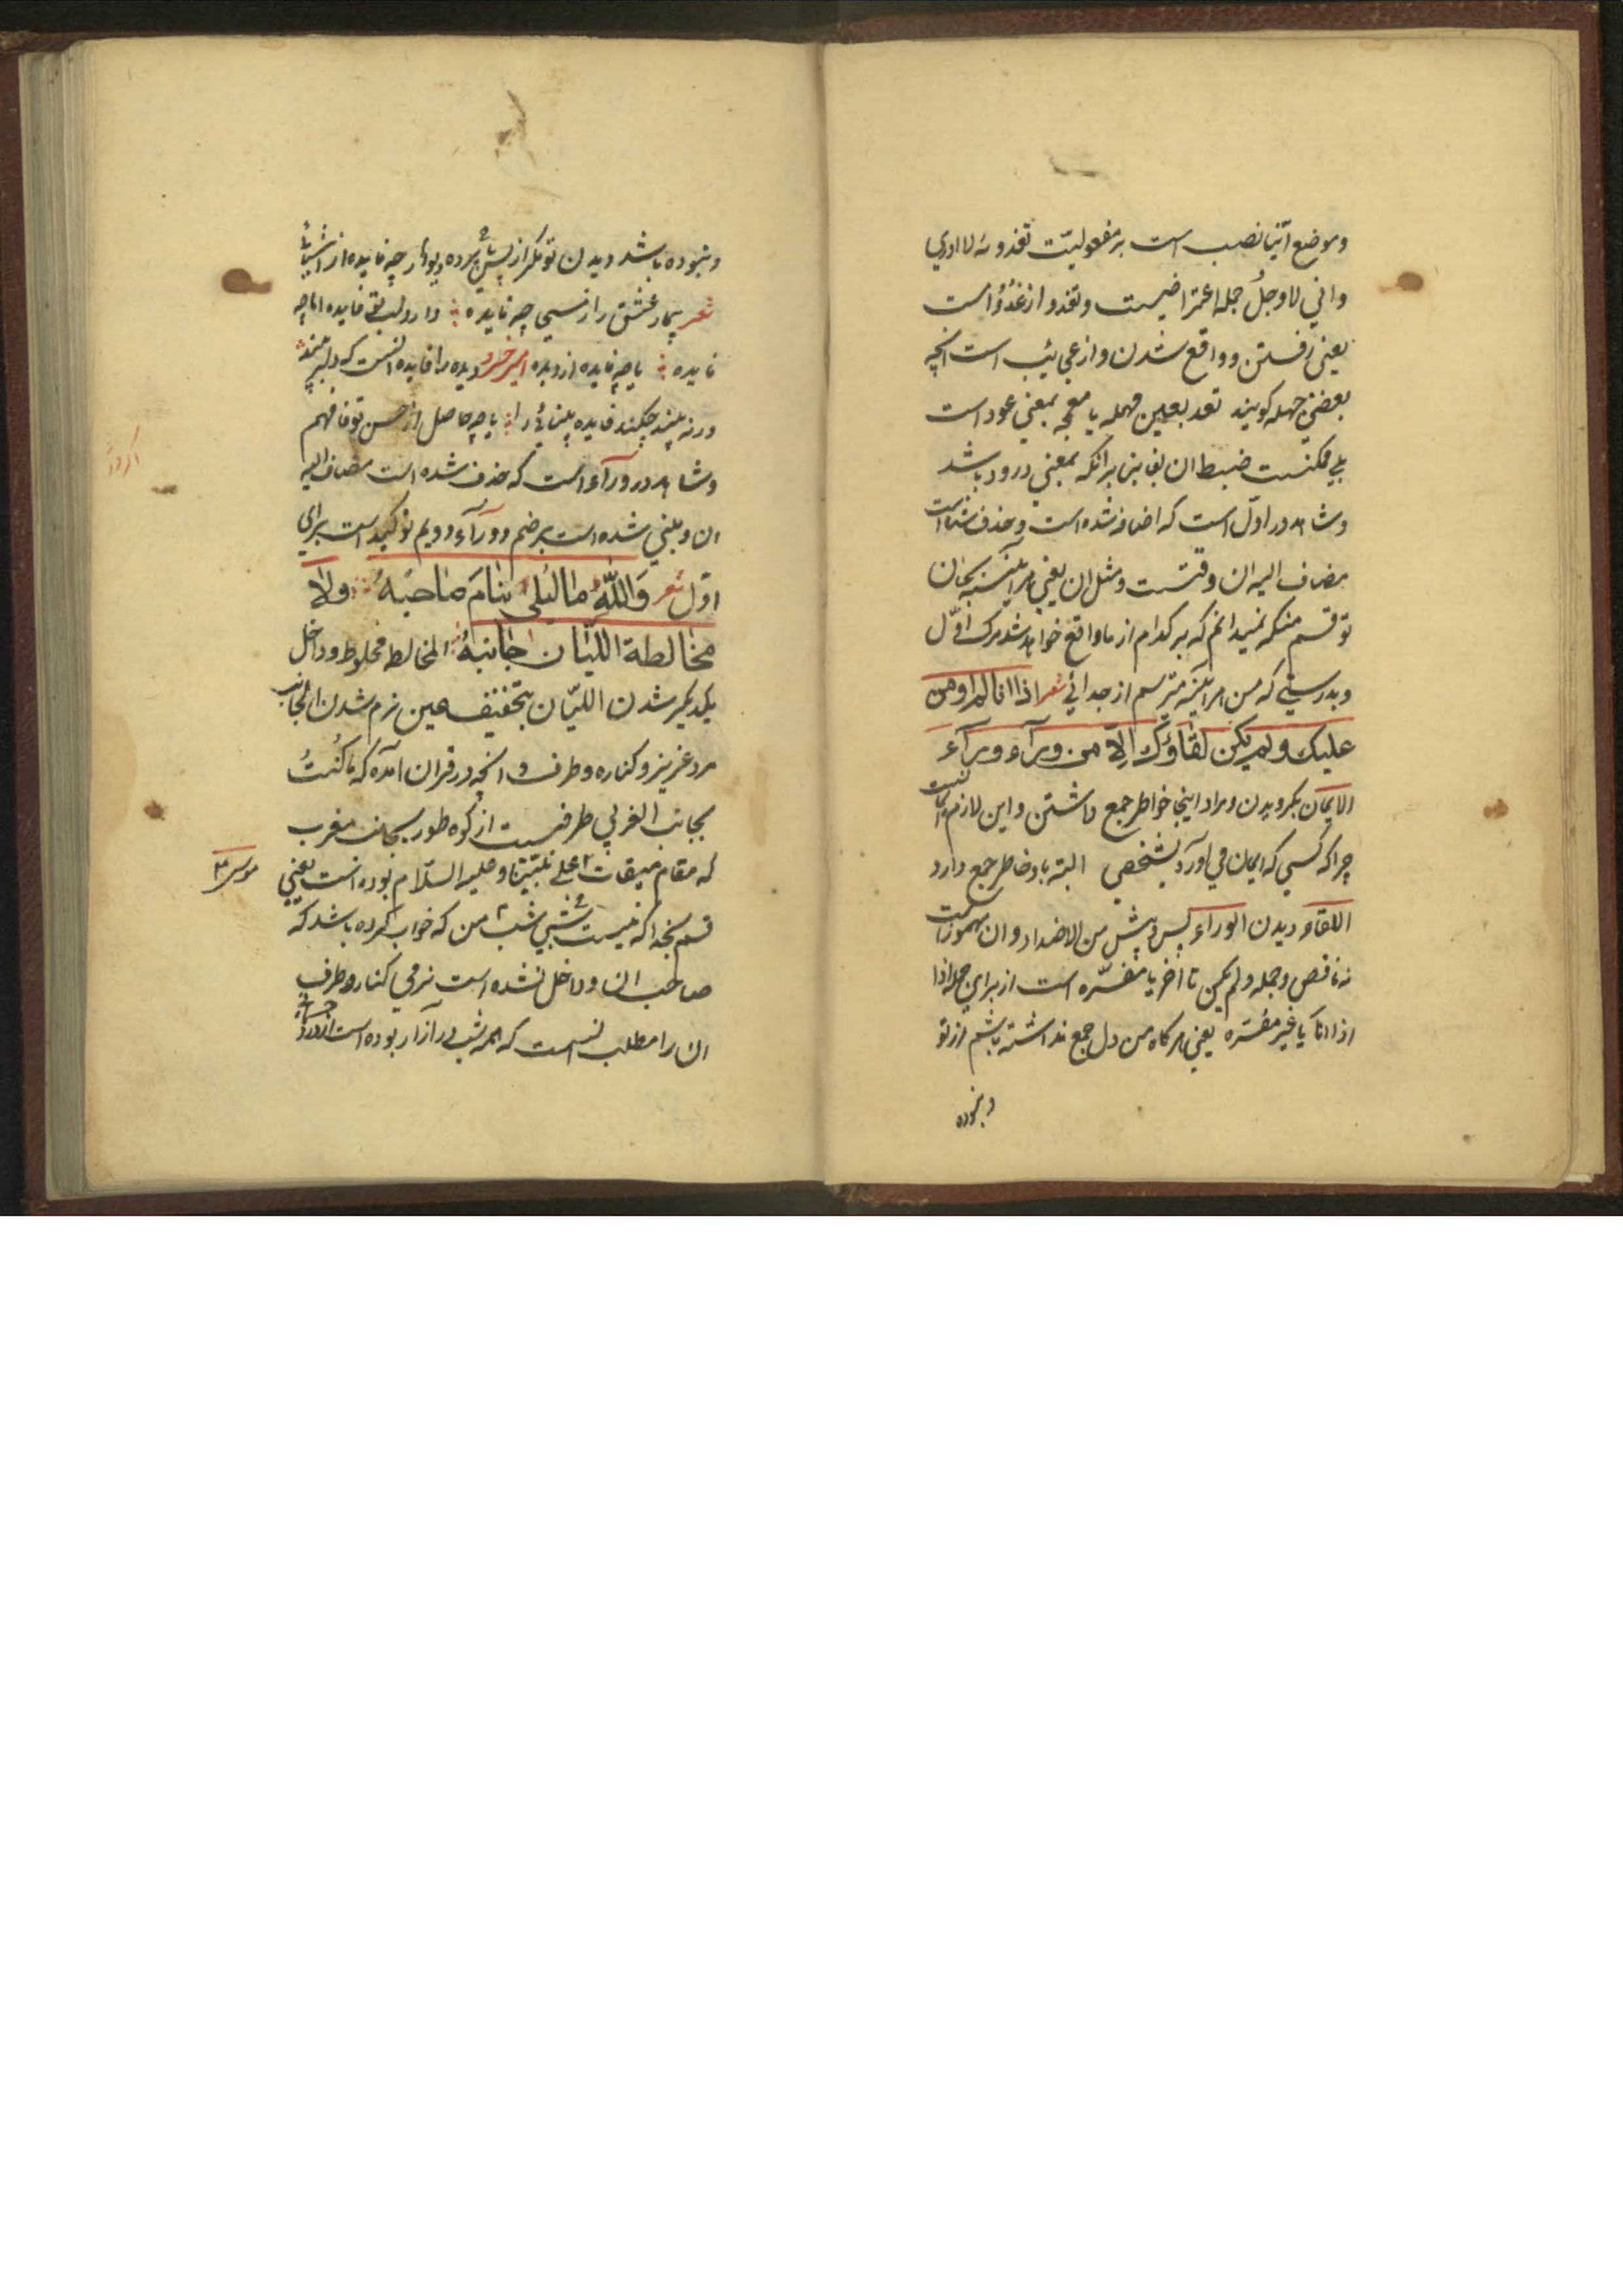 وموضع اینا نصب است بر مفعولیّت تغدو نه لا ادری
وانی لاوجل جمله اعتراضیست وتغدو از غُدُوّ است
یعنی رفتن وواقع شدن واز عجایب است انچه
بعضی جهله کویند تعد بعین مهمله یا معجمه بمعنی عود است
بلی ممکنست ضبط ان بفا بنابرانکه بمعنی درود باشد
وشاهد در اوّل است که اضافه شده است وحذف شده است
مضاف الیه ان وقتست ومثل ان یعنی هر آینه بجان
تو قسم منکه نمیدانم که بر کدام از ما واقع خواهد شد مرک اوّل
وبدرستی که من هر اینه مترسم از جدائی شعر اذا انا لم اومن
علیك ولم یکن لقاؤك الّا من ورآء ورآء
الایمان بکرویدن ومراد اینجا خواطر جمع داشتن واین لازم آنست
چرا که کسی که ایمان می اورد بشخصی البته باو خاطر جمع دارد
اللقاء دیدن الوراء پس وپیش من الاضداد وان مهموز است
نه ناقص وجمله ولم یکن تا اخر یا مفسّره است از برای جمله اذا
اذا انا یا غیر مفسّره یعنی هر کاه من دل جمع نداشته باشم از تو
ونبوده
ونبوده باشد دیدن تو مکر از پس پرده ودیوار چه فایده از
شعر بیمار عشق را ز مسیحی چه فایده دارو لب تو فایده اما چه
فایده یا چه فایده از دیده امیر خسرو دیده را فایده انست که دلبر بیند
ور نه بیند چکند فایده بینائی را یا چه حاصل از حسن تو فافهم
وشاهد در ورآء است که حذف شده است مضاف الیه
ان ومبنی شده است بر ضم وورآء دویم توکید است برای
اوّل شعر وَاللّهِ ما لیلی بنامَ صاحبُهُ ولا
مخالطة اللیان جانبهُ المخالطه مخلوط وداخل
یکدیکر شدن اللیّان بتخفیف عین نرم شدن الجانب
مرد غریز وکناره وطرف وانچه در قران آمده که ما کُنتُ
بجانب الغربی طرفیست از کوه طور بجانب مغرب
که مقام میقات علی نبیّنا وعلیه السّلام بوده است یعنی
موسی
قسم بخدا که نیست شبی شب من که خواب کرده باشد که
صاحب ان وداخل نشده است نرمی کنار وطرف
ان را مطلب انست که همه شب در آزار بوده است از درد